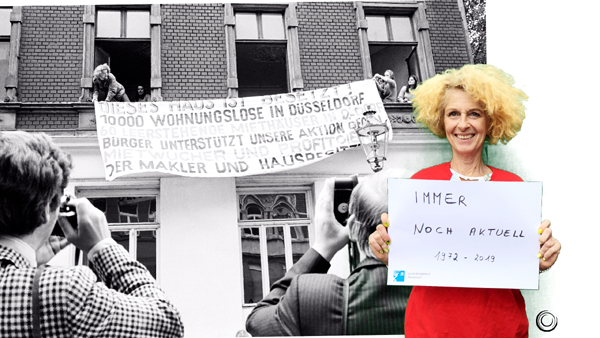 DIESES HAUS IST BESETZT!
10000 WOHNUNGSLOSE IN DÜSSELDORF
60 LEERSTEHENDE
BÜRGER UNTERSTÜTZT UNSERE AKTION GEGEN
UND PROFIT
DER MAKLER UND HAUSBESITZER
IMMER
NOCH AKTUELL
1972 - 2019